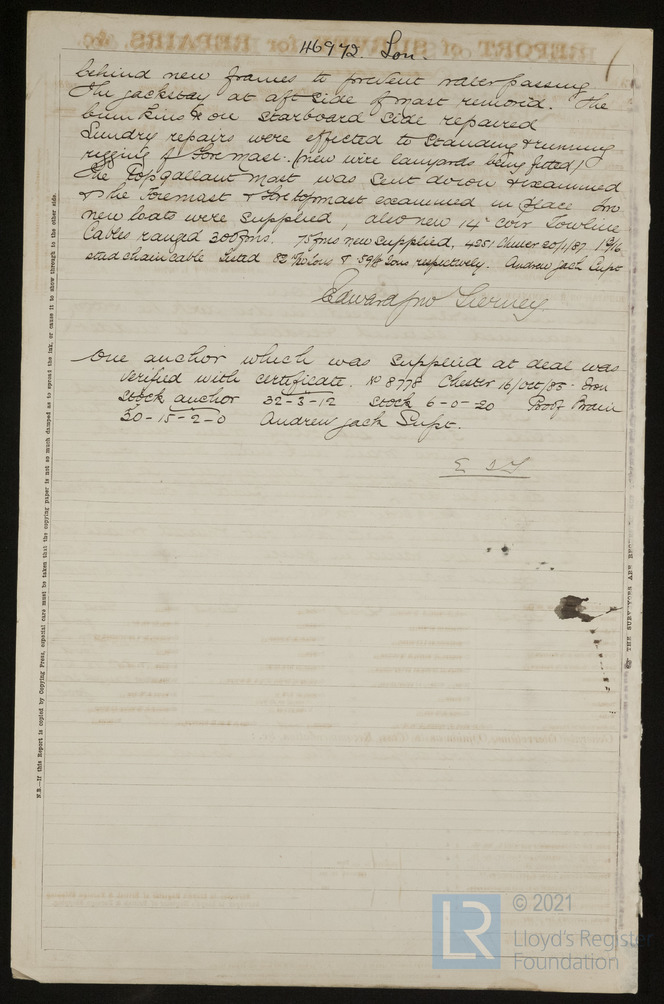 46972. Lon.
behind new frames to prevent water passing
The jackstay at aft side of mast removed. The
bumkins &c on starboard side repaired
Sundry repairs were effected to standing & running
rigging of Fore mast. (new wire lanyards being fitted)
The topgallant mast was sent down & examined
& the Foremast & Foretopmast examined in place
new boats were supplied, also new 14" coir Towline
Cables ranged 300 fms. 75 fms new supplied. 4251 Chester 20/1/87 1 15/16
stud chain cable Tested tons & tons respectively. Andrew Jack Supt
Edward Jno Tierney.
One anchor which was supplied at deal was
verified with certificate. No 8778 Chester 16/Oct/85. Iron
stock anchor 32-3-12 stock 6-0-20 Proof Strain
30-15-2-0 Andrew Jack Supt.
E J T
N.B.—If this Report is copied by Copying Press, especial care must be taken that the copying paper is not so much damped as to spread the ink, or cause it to show through to the other side.
THE SURVEYORS ARE REQ
REPORT of SURVEY for REPAIRS, &c.
LR
© 2021
Lloyd's Register
Foundation